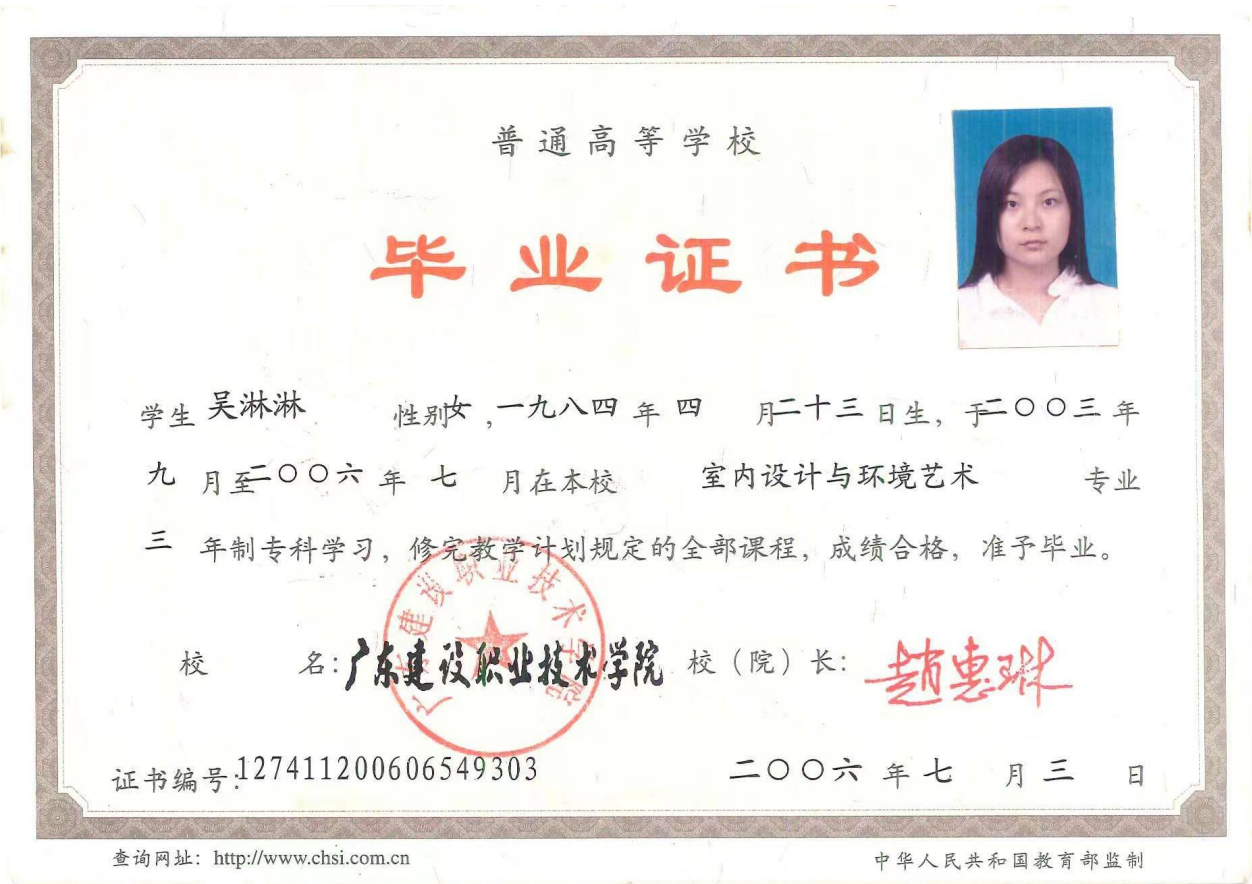 普通高等学校
毕业证书
学生 吴淋淋 性别女,一九八四年四月二十三日生，于二〇〇三年
九月至二〇〇六年七月在本校 室内设计与环境艺术 专业
三年制专科学习，修完教学计划规定的全部课程，成绩合格，准予毕业。
广东建设职业技术学院
校 名:广东建设职业技术学院 校（院）长: 趙惠琳
证书编号:127411200606549303 二〇〇六年七月三日
查询网址：http://www.chsi.com.cn 中华人民共和国教育部监制